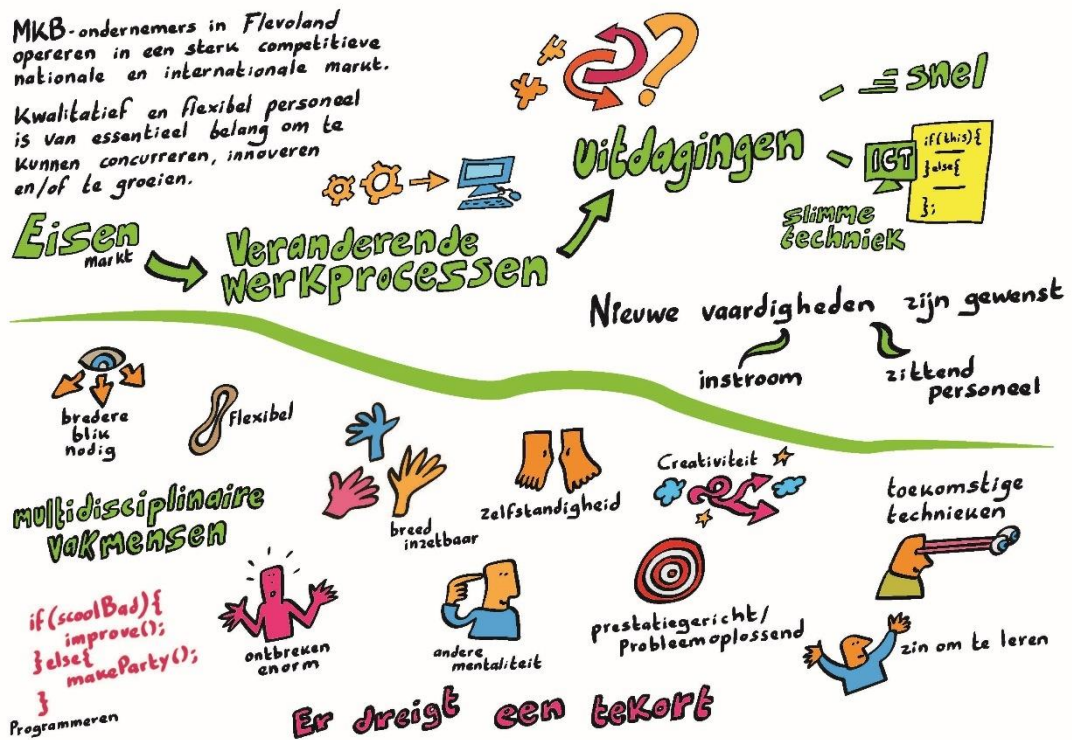 MKB-ondernemers in Flevoland
opereren in een sterk competitieve
nationale en internationale markt.
Kwalitatief en flexibel personeel
is van essentieel belang om te
kunnen concurreren, innoveren
en/of te groeien.
Eisen
markt
Veranderende
werkprocessen
?
Uitdagingen
snel
ICT
if(this){
}else{
};
slimme
techniek
Nieuwe vaardigheden zijn gewenst
instroom
zittend
personeel
bredere
blik
nodig
flexibel
multidisciplinaire
vakmensen
breed
inzetbaar
zelfstandigheid
Creativiteit
toekomstige
technieken
if(scoolBad){
improve();
}else{
makeParty();
}
Programmeren
ontbreken
enorm
andere
mentaliteit
prestatiegericht/
Probleemoplossend
zin om te leren
Er dreigt een tekort